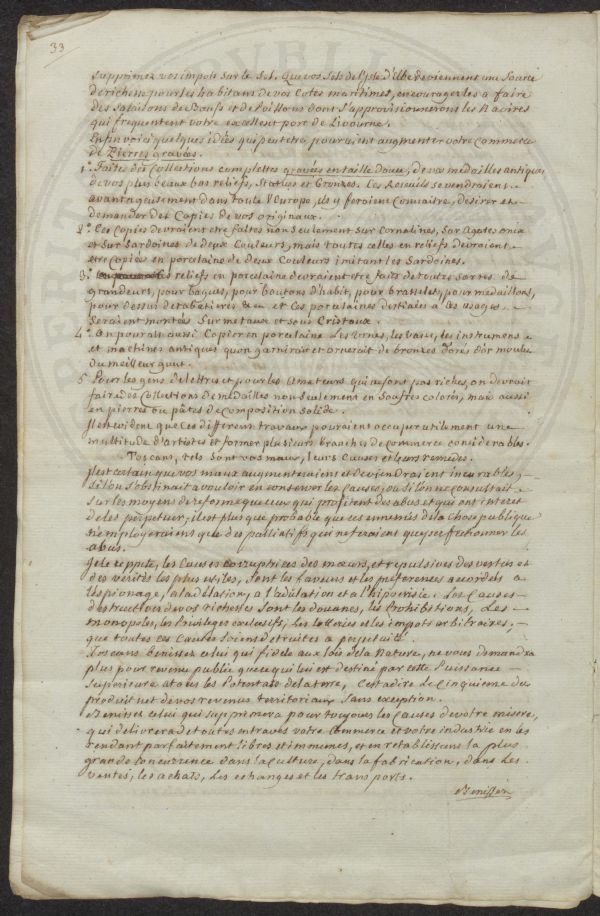 33
supprimez vos impots sur le Sel. Que vos Sels de l'Isle d'Elbe deviennent une source
de richesse pour les habitans de vos Cotes maritimes, encouragez les a faire
des Salaisons de Boeufs et de Poissons dont s'approvisionneront les Navires
qui frequentent votre excellent port de Livourne.
Enfin voici quelques idées qui peut etre pouroient augmenter votre Commerce
de Pierres gravées.
1.° Faites des Collections complettes gravées en taille douce, de vos medailles antiques
de vos plus beaux bas reliefs, Statues et Bronzes. Les Recueils se vendroient
avantageusement dans toute l'Europe, ils y feroient Connaitre, desirer et
demander des Copies de vos originaux.
2.° Ces Copies devraient etre faites non seulement sur Cornalines, Sur Agates onix
et sur Sardoines de deux Couleurs, mais toutes celles en reliefs devroient
etre Copiées en porcelaine de deux Couleurs imitant les Sardoines.
3.° reliefs en porcelaine devraient etre faits de toutes sortes de
grandeurs, pour bagues, pour boutons d'habit, pour brasselets, pour medaillons,
pour dessus de tabatieres &c. et Ces porcelaines destinées a Ces usages
Seraient montées Sur metaux et sous Cristaux.
4.° On pouroit aussi Copier en porcelaine Les Urnes, les Vases, les instrumens
et machines antiques qu'on garnirait et orneroit de bronzes dorés d'or moulu
du meilleur gout.
5. Pour les gens de lettres et pour les Amateurs qui ne sont pas riches, on devroit
faire des Collections de medailles non seulement en Soufres colorés, mais aussi
en pierres ou pâtes de composition solide.
Il est evident que Ces differens travaux pouroient occuper utilement une
multitude d'artistes et former plusieurs branches de commerce considerables.
Toscans, tels Sont vos maux, leurs Causes et leurs remedes.
Il est certain que vos maux augmenteraient et deviendraient incurables,
si l'on s'obstinait a vouloir en conserver les Causes, ou si l'on ne consultait
Sur les moyens de reforme que ceux qui profitent des abus et qui ont interet
de les perpetuer; il est plus que probable que ces ennemis de la Chose publique
n'employeroient que des palliatifs qui ne feraient que perfectionner les
abus.
Je le repete, les Causes Corruptrices des moeurs, et repulsives des vertus et
des vérités les plus utiles, sont les faveurs et les preferences accordés a
l'Espionage, a la délation, a l'adulation et a l'hipocrisie. Les Causes
destructives de vos richesses sont les douanes, les Prohibitions, Les
monopoles, les Privileges exclusifs, Les Lotteries et les impots arbitraires;
que toutes ces Causes soient detruites a perpetuité.
Toscans benissez celui qui fidele aux loix de la Nature, ne vous demandra
plus pour revenu public que ce qui lui est destiné par cette Puissance
superieure a tous les Potentats de la terre, C'est a dire Le Cinquieme du
produit net de vos revenus territoriaux sans exception.
Benissez celui qui supprimera pour toujours les Causes de votre misere,
qui delivrera de toutes entraves votre Commerce et votre industrie en les
rendant parfaitement libres et immunes, et en retablissant la plus
grande Concurrence dans la Culture, dans la fabrication, dans Les
ventes, les achats, Les echanges et les transports.
Benissez